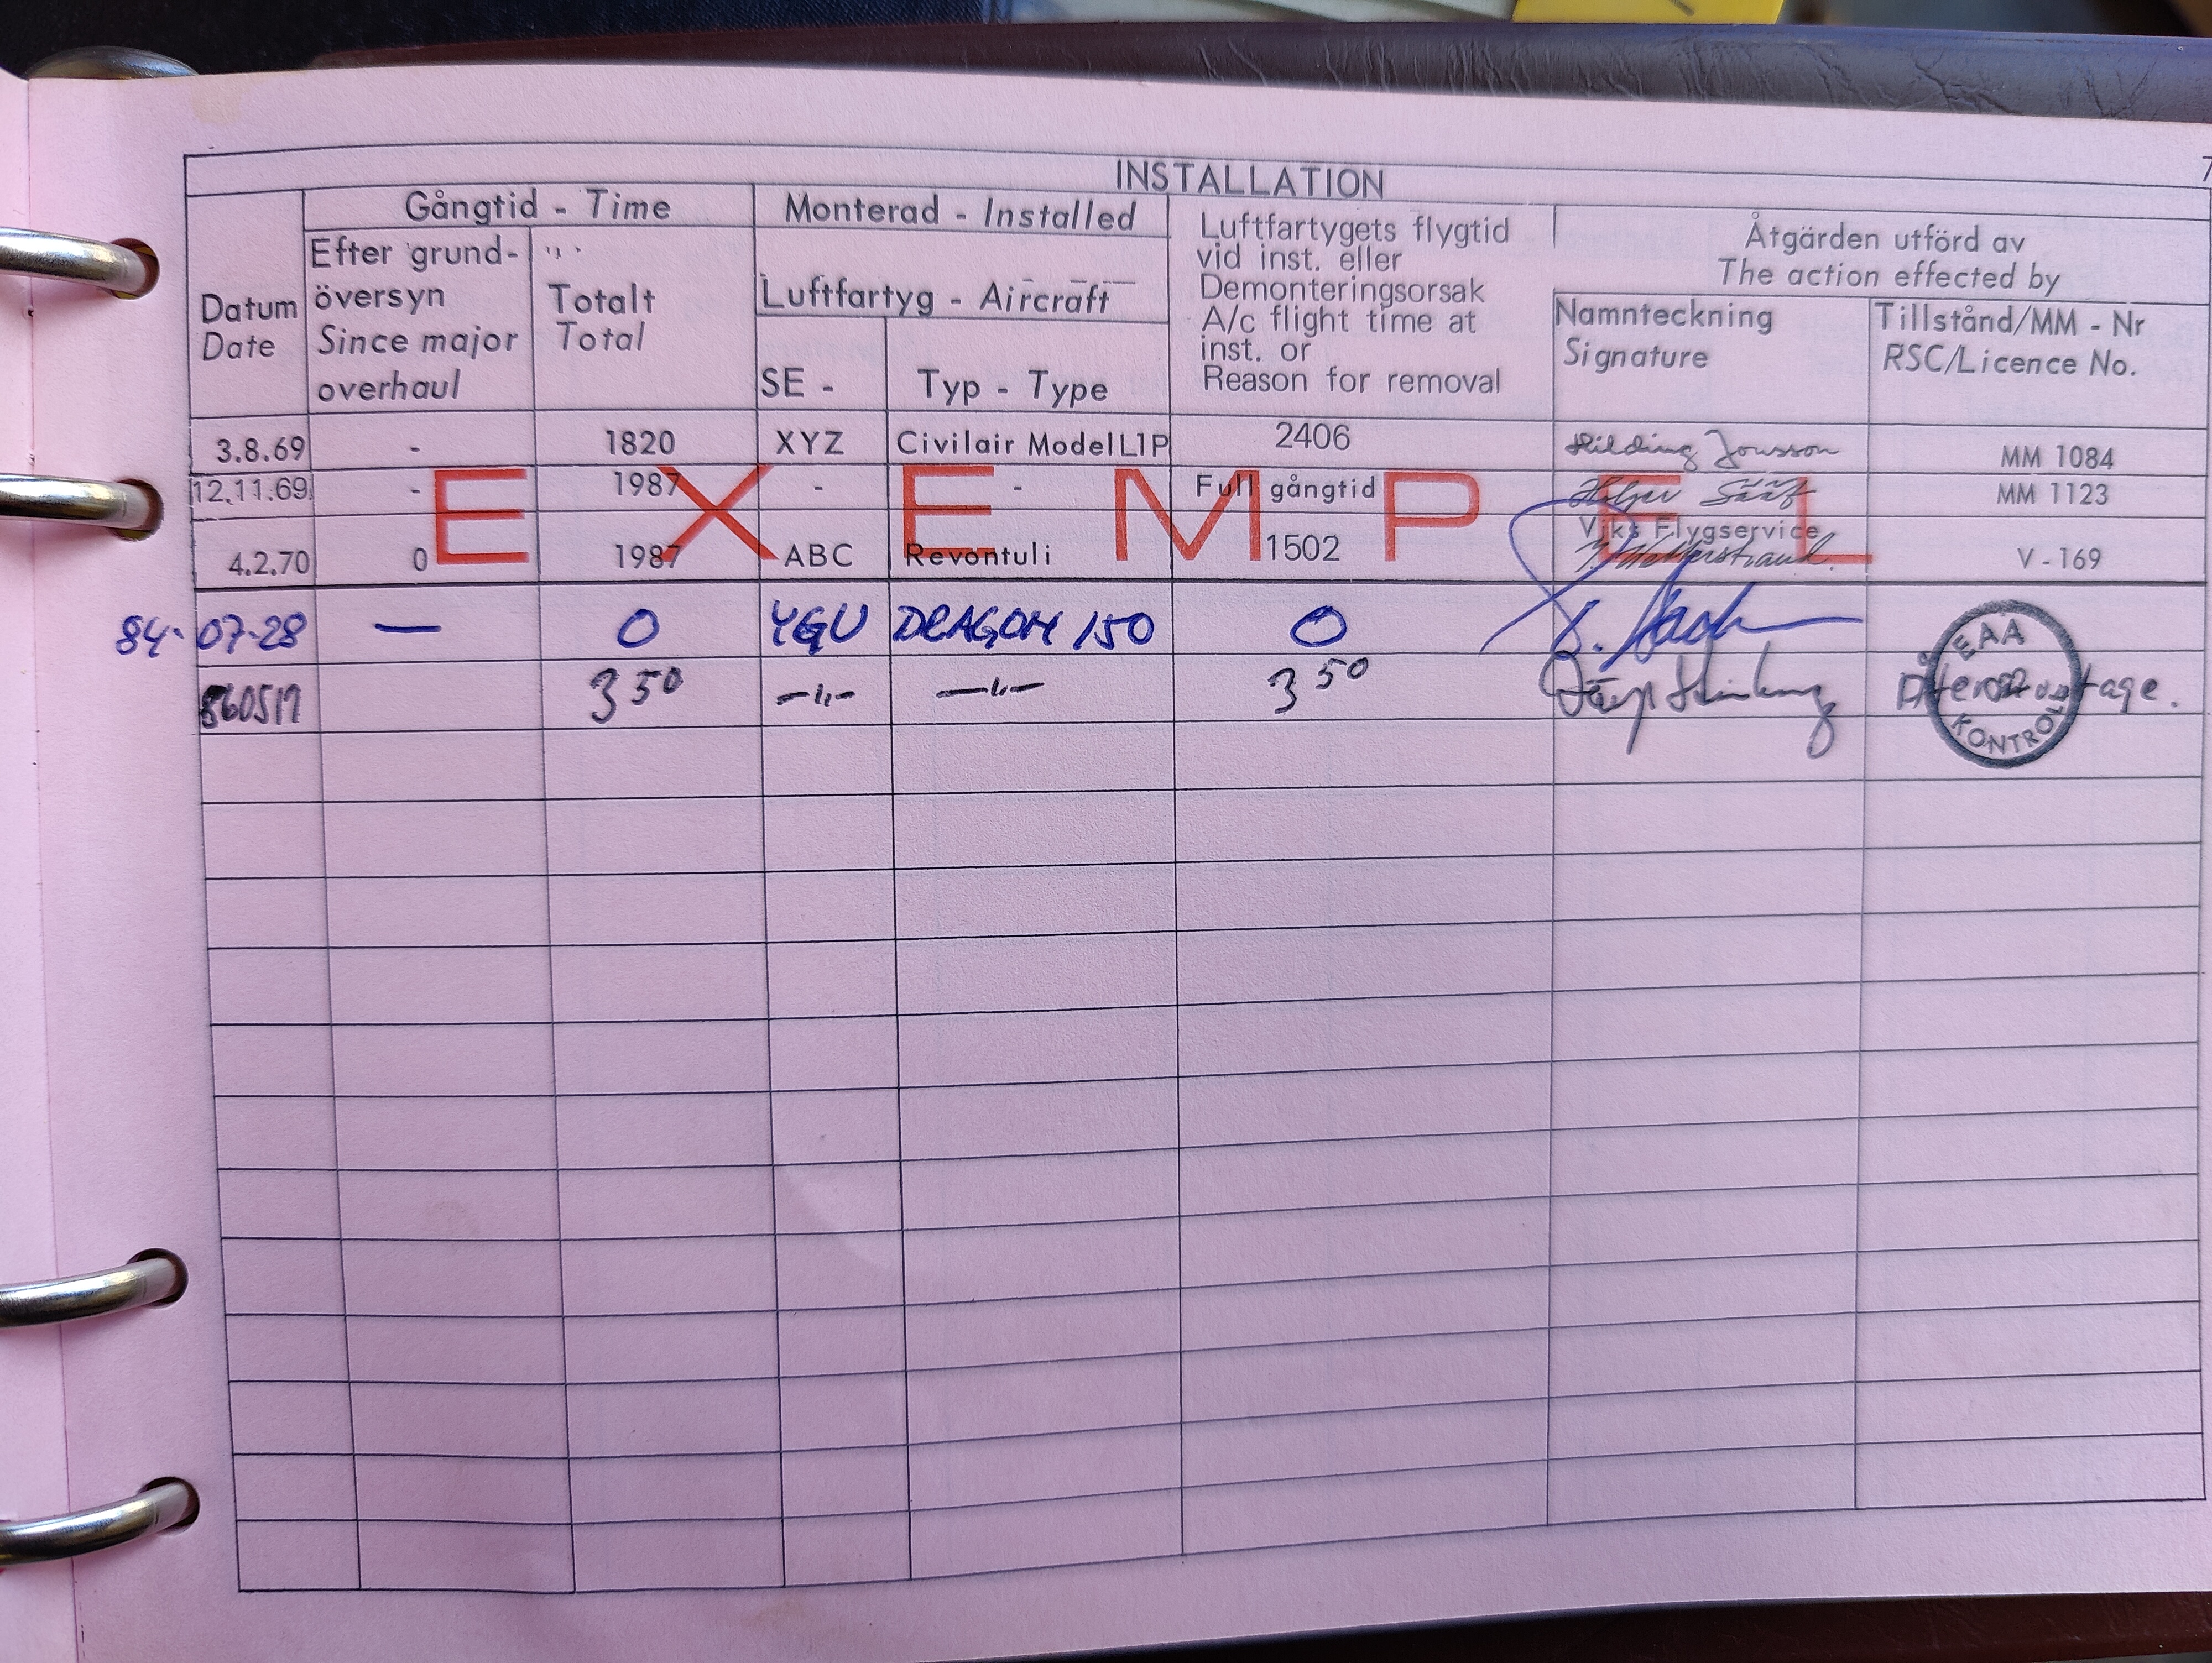 7
INSTALLATION
Gångtid - Time
Monterad - Installed
Luftfartygets flygtid
vid inst. eller
Demonteringsorsak
A/c flight time at
inst. or
Reason for removal
Åtgärden utförd av
The action effected by
Datum
Date
Efter grund-
översyn
Since major
overhaul
Totalt
Total
Luftfartyg - Aircraft
SE -
Typ - Type
Namnteckning
Signature
Tillstånd/MM - Nr
RSC/Licence No.
3.8.69 - 1820 XYZ Civilair Model L1P 2406 Hilding Jonsson MM 1084
12.11.69 - 1987 - - Full gångtid Holger Sääf MM 1123
EXEMPEL
Viks Flygservice
4.2.70 0 1987 ABC Revontuli 1502 V - 169
84-07-28 — 0 YGU DRAGON 150 0
EAA
860517 3 50 -"- -"- 3 50
KONTROLL